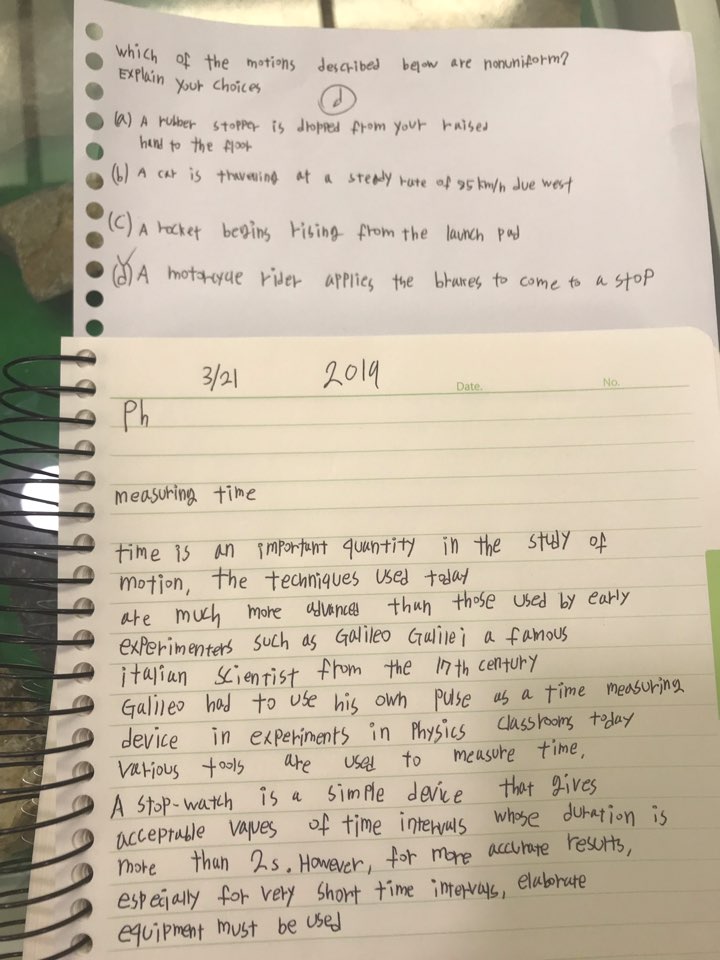 which of the motions described below are nonuniform?
Explain your choices
d
(a) A rubber stopper is dropped from your raised
hand to the floor
(b) A car is travelling at a steady rate of 95 km/h due west
(c) A rocket begins rising from the launch pad
(d) A motorcycle rider applies the brakes to come to a stop
3/21 2019
Date. No.
Ph
measuring time
time is an important quantity in the study of
motion, the techniques used today
are much more advanced than those used by early
experimenters such as Galileo Galilei a famous
italian scientist from the 17th century
Galileo had to use his own pulse as a time measuring
device in experiments in Physics classrooms today
various tools are used to measure time,
A stop-watch is a simple device that gives
acceptable values of time intervals whose duration is
more than 2s. However, for more accurate results,
especially for very short time intervals, elaborate
equipment must be used